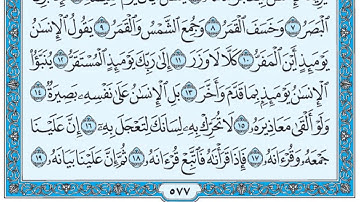 ٱلْبَصَرُ ٧ وَخَسَفَ ٱلْقَمَرُ ٨ وَجُمِعَ ٱلشَّمْسُ وَٱلْقَمَرُ ٩ يَقُولُ ٱلْإِنسَٰنُ
يَوْمَئِذٍ أَيْنَ ٱلْمَفَرُّ ١٠ كَلَّا لَا وَزَرَ ١١ إِلَىٰ رَبِّكَ يَوْمَئِذٍ ٱلْمُسْتَقَرُّ ١٢ يُنَبَّؤُا۟
ٱلْإِنسَٰنُ يَوْمَئِذٍۭ بِمَا قَدَّمَ وَأَخَّرَ ١٣ بَلِ ٱلْإِنسَٰنُ عَلَىٰ نَفْسِهِۦ بَصِيرَةٌ ١٤
وَلَوْ أَلْقَىٰ مَعَاذِيرَهُۥ ١٥ لَا تُحَرِّكْ بِهِۦ لِسَانَكَ لِتَعْجَلَ بِهِۦٓ ١٦ إِنَّ عَلَيْنَا
جَمْعَهُۥ وَقُرْءَانَهُۥ ١٧ فَإِذَا قَرَأْنَٰهُ فَٱتَّبِعْ قُرْءَانَهُۥ ١٨ ثُمَّ إِنَّ عَلَيْنَا بَيَانَهُۥ ١٩
٥٧٧